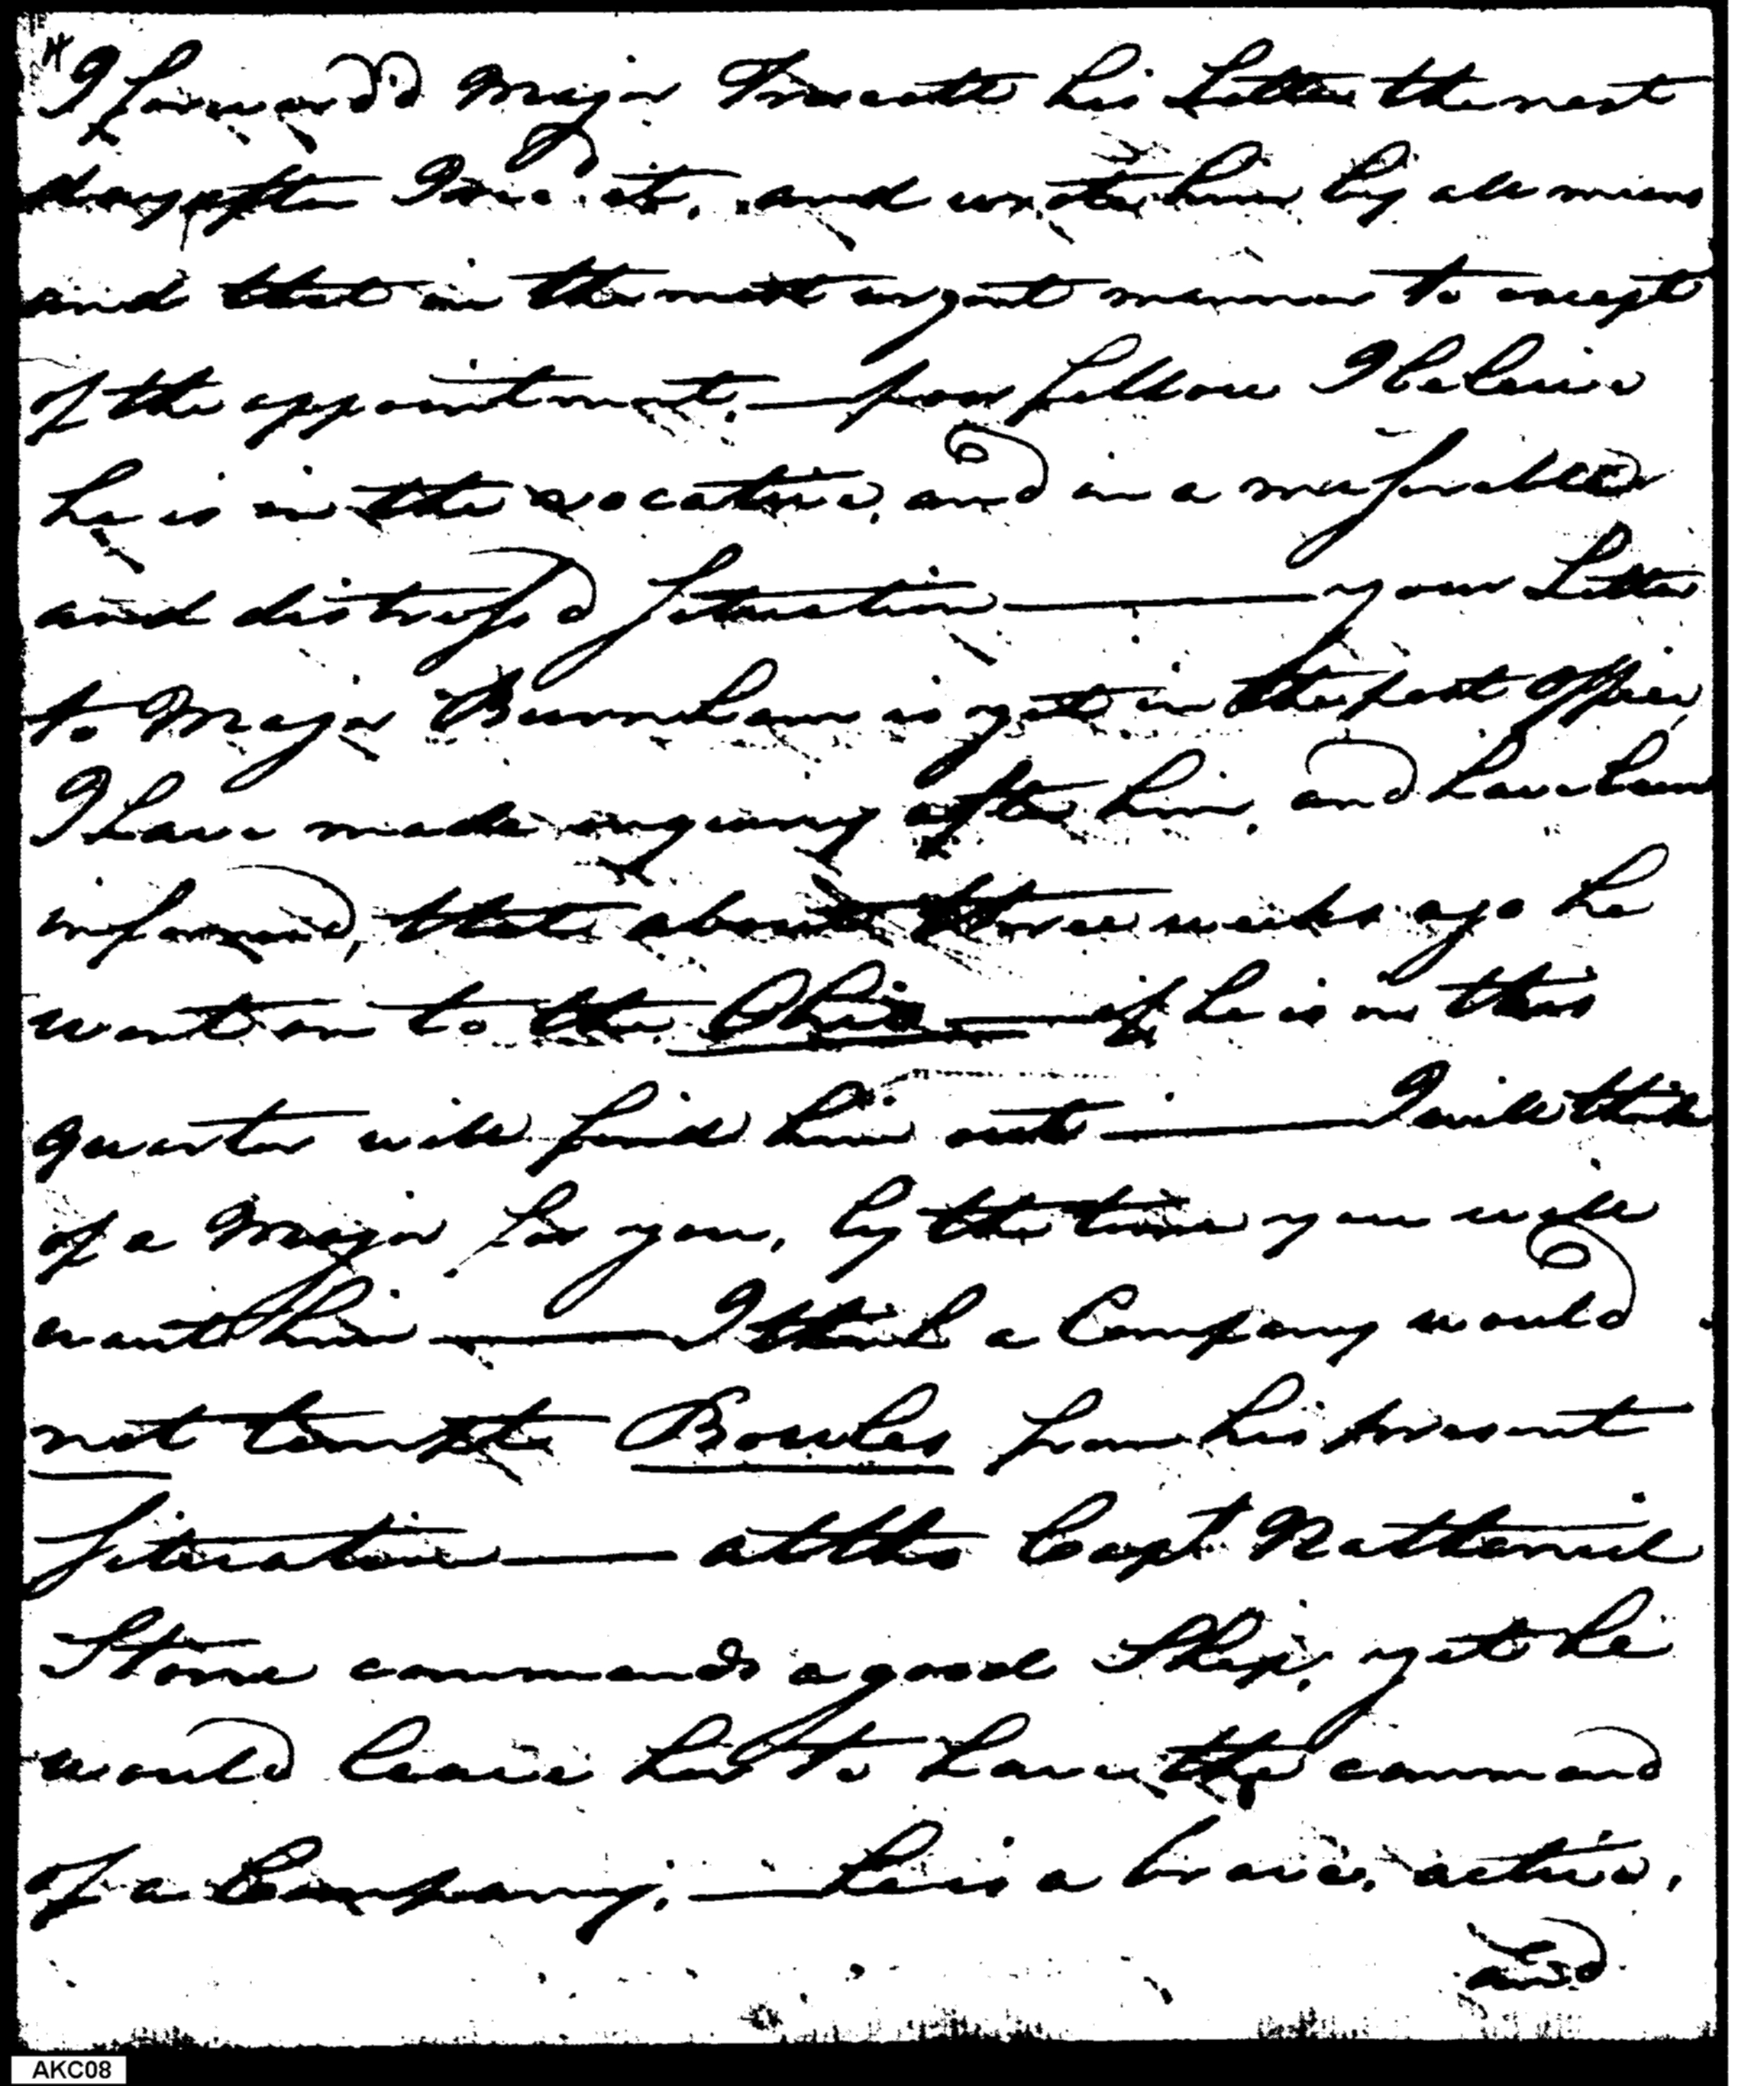 I forward'd Major Trescott his Letter the next
day after I rec'd it, and wrote him by all means
and that in the most urgent manner to except
of the appointment. — poor fellow I beleive
he is in the vocative, and in a miserable
and distress'd situation — your Letter
to Major Burnham is yet in the post office,
I have made enquiry after him, and have been
informed, that about three weeks ago he
went on to the Ohio — if he is in this
quarter will find him out — I will think
of a Major for you, by the time you will
want him — I think a Company would
not tempt Bowles from his present
situation — altho Capt Nathaniel
Stone commands a good Ship, yet he
would leave her to have the command
of a Company. — he is a brave, active,
and
AKC08